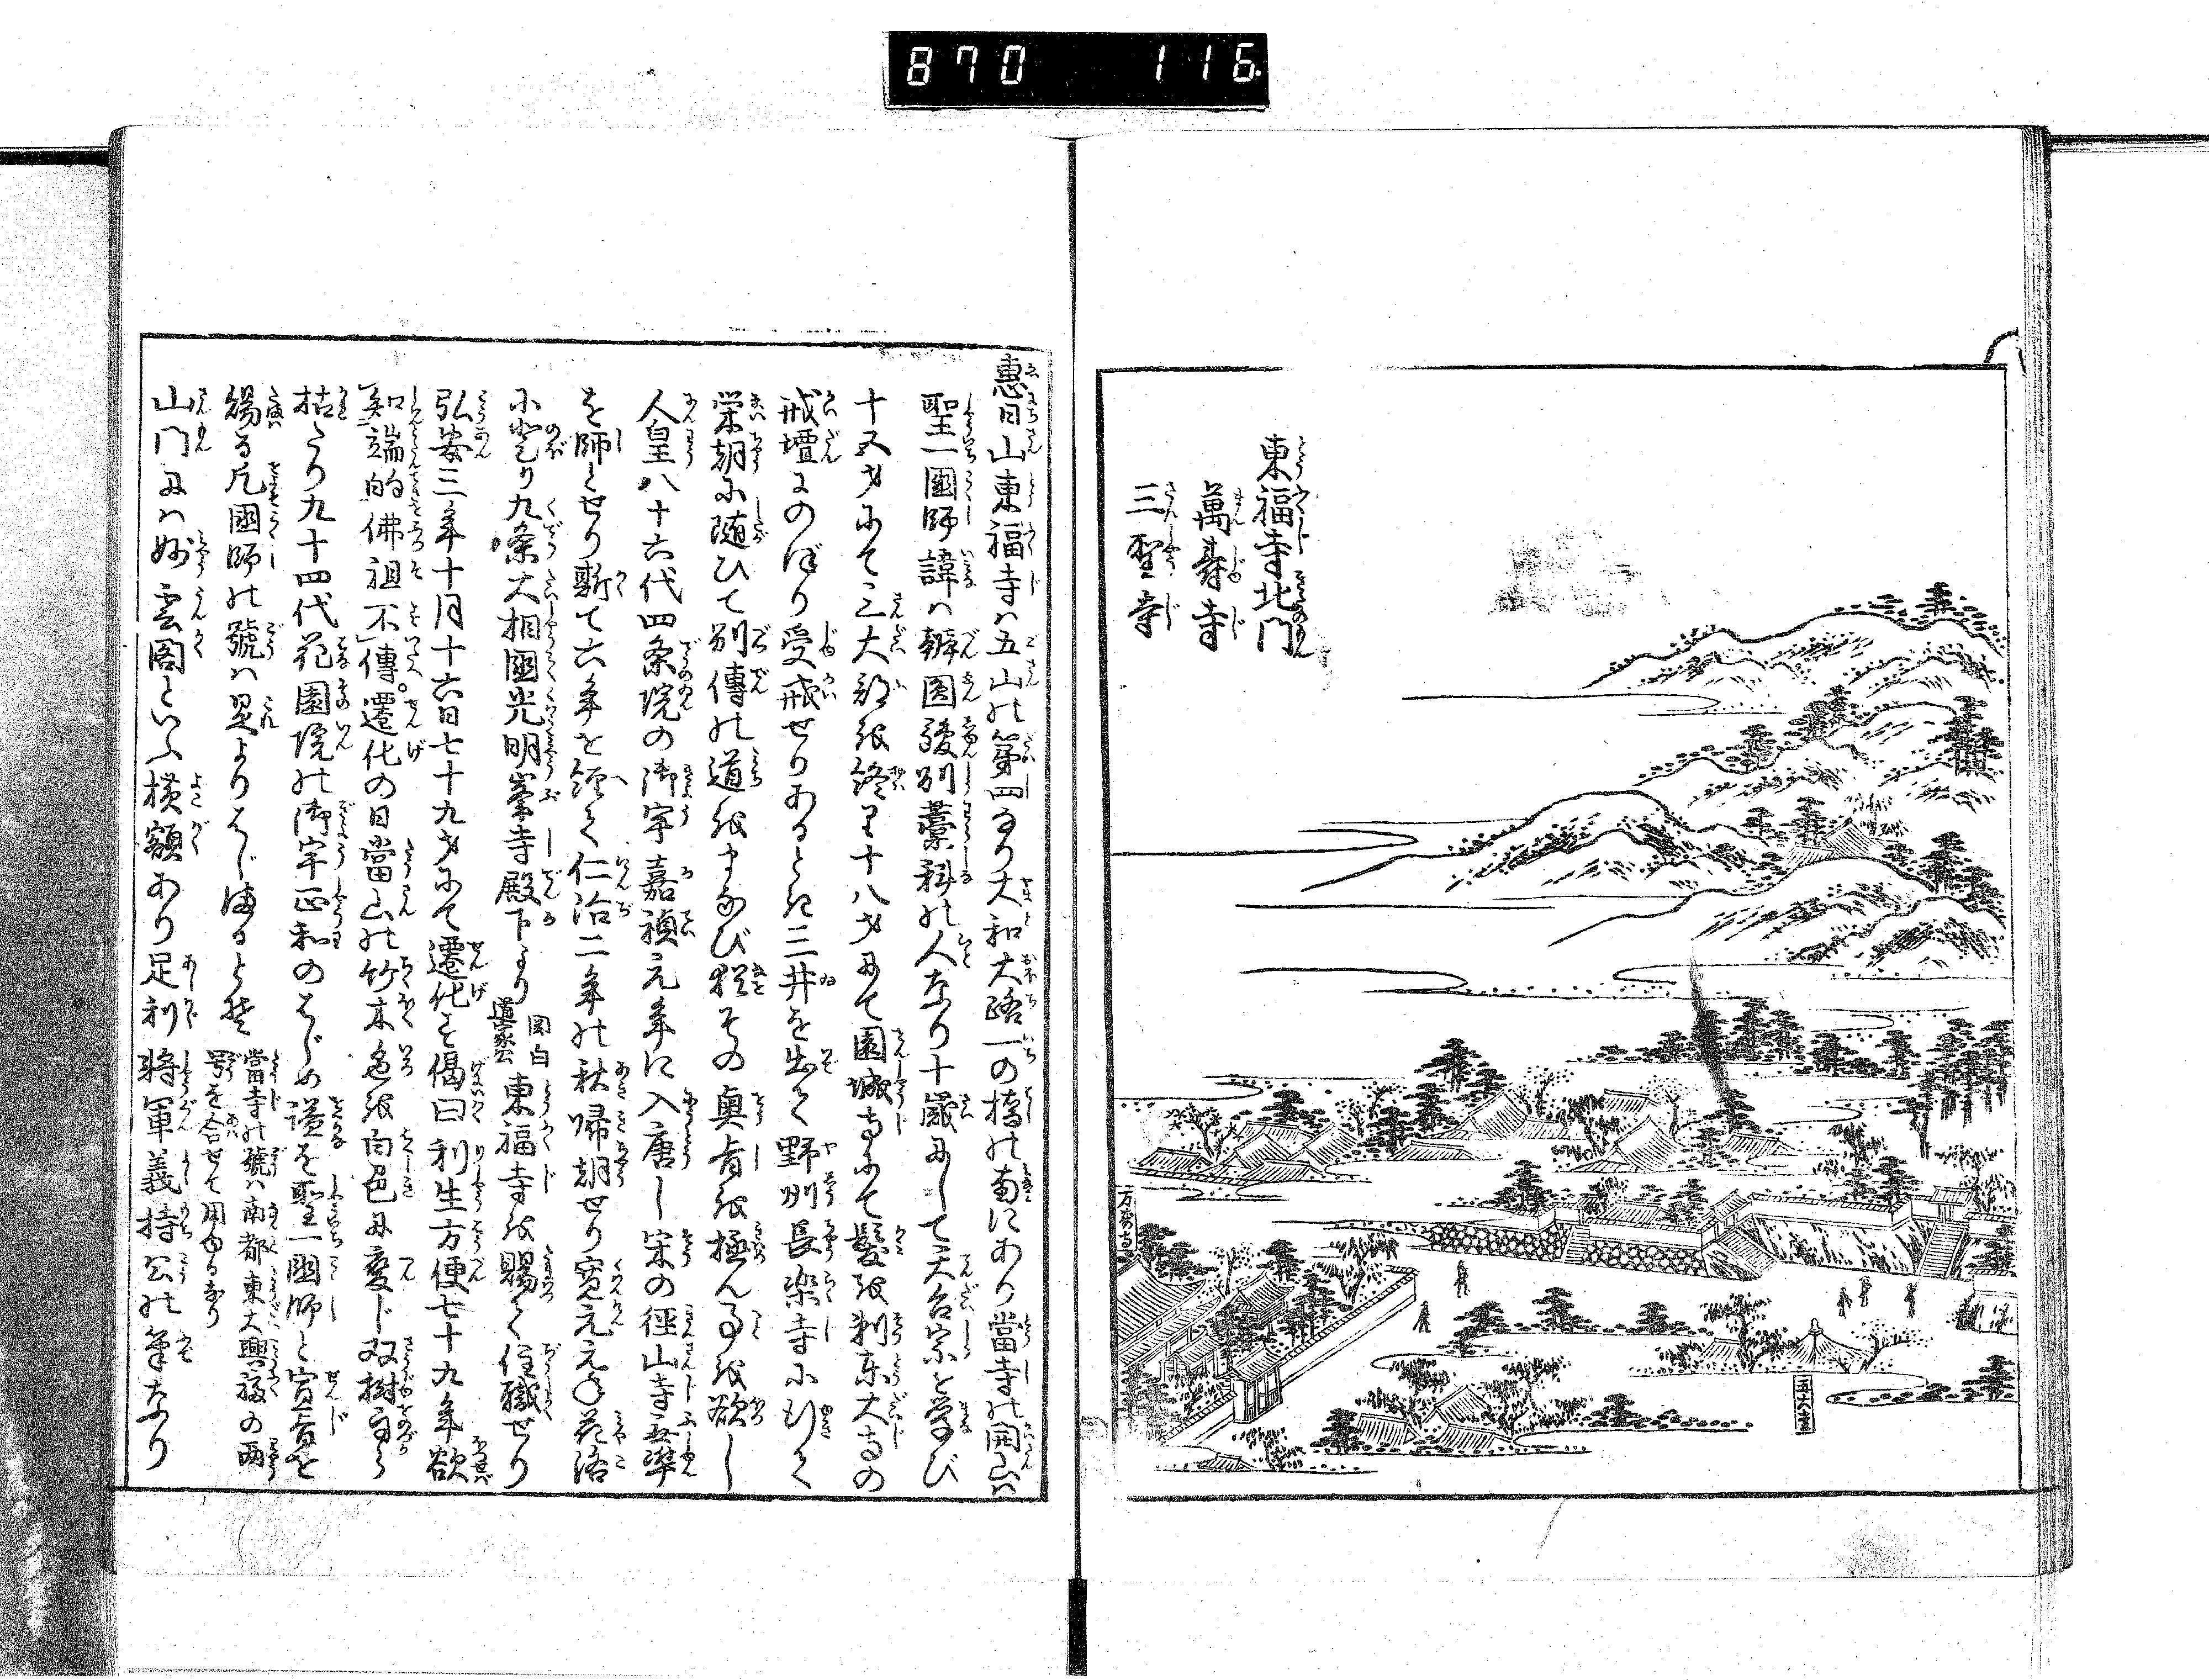 870 116
東福寺北門
萬壽寺
三聖寺
万寿寺
五大堂
惠日山東福寺ハ五山の第四なり大和大路一の橋の南にあり當寺の開山ハ
聖一國師諱ハ辨圓發別藁科の人なり十歳にして天台宗を学び
十五才にて三大部を終え十八才にて園城寺にて髪を剃東大寺の
戒壇にのぼり受戒せりあるとき三井を出て野州長楽寺に行て
栄朝に随ひて別傳の道をまなび猶その奥旨を極ん事を欲し
人皇八十六代四条院の御宇嘉禎元年に入唐し宋の徑山寺無準
を師とせり斯て六年を経て仁治二年の秋帰朝せり寛元元年花洛
に登り九条大相國光明峯寺殿下より
関白
道家公
東福寺を賜て住職せり
弘安三年十月十六日七十九才にて遷化す偈曰利生方便七十九年欲
知端的佛祖不傳。遷化の日當山の竹木色を白色に変じ双樹自ら
枯たり九十四代花園院の御宇正和のはじめ諡を聖一國師と宣旨を
賜る凡國師の號ハ是よりはじまるとぞ
當寺の號ハ南都東大興福の両
号を合せて用ゆるなり
山門にハ妙雲閣といふ横額あり足利将軍義持公の筆なり